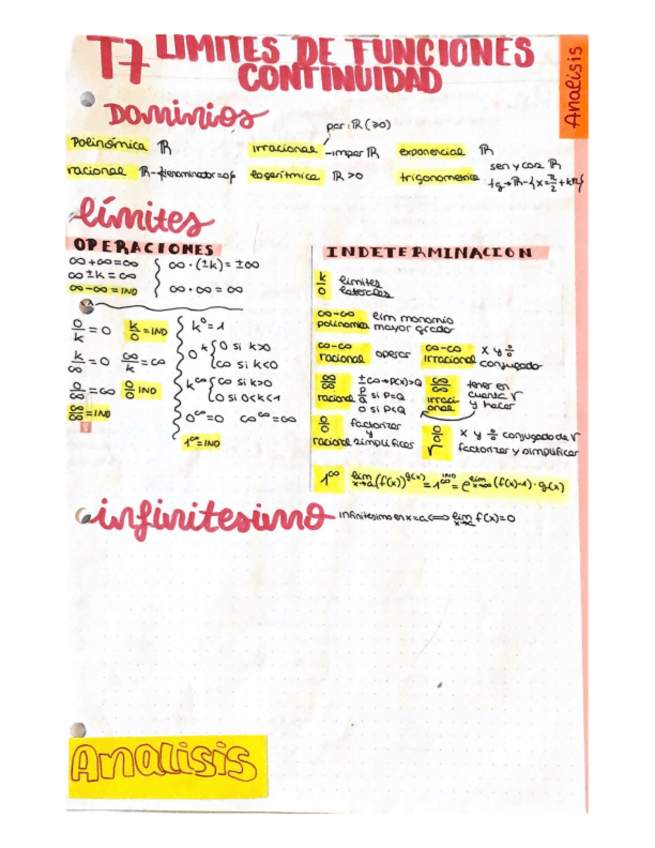 T7 LIMITES DE FUNCIONES
CONTINUIDAD
Analisis
Dominios
Polinómica ℝ
irracional
par: ℝ (≥0)
impar ℝ
exponencial ℝ
racional ℝ - denominador=0
logarítmica ℝ >0
trigonometrica
sen y cos ℝ
tg→ℝ-{x=π/2+kπ}
límites
OPERACIONES
∞+∞=∞
∞±k=∞
∞-∞=IND
∞·(±k)=±∞
∞·∞=∞
0/k=0
k/0=IND
k/∞=0
∞/k=∞
0/∞=∞
0/0 IND
∞/∞=IND
k⁰=1
0^k {0 si k>0
∞ si k<0
k^∞ {∞ si k>0
0 si 0<k<1
0^∞=0 ∞^∞=∞
1^∞=IND
INDETERMINACION
k/0 límites
laterales
∞-∞ lim monomio
polinomios mayor grado
∞-∞ racional operar
∞-∞ irracional x y ÷ conjugado
∞/∞ racional
±∞→P(x)>Q
si P=Q
0 si P<Q
∞/∞ irracional
tener en
cuenta √
y hacer
0/0 racional
factorizar
y
simplificar
0/0 √ x y ÷ conjugado de √
factorizar y simplificar
1^∞ lim x→a (f(x))^g(x) = 1^∞ IND = e^lim x→∞ (f(x)-1)·g(x)
infinitesimo
infinitesimo en x=a ⟺ lim x→a f(x)=0
Analisis